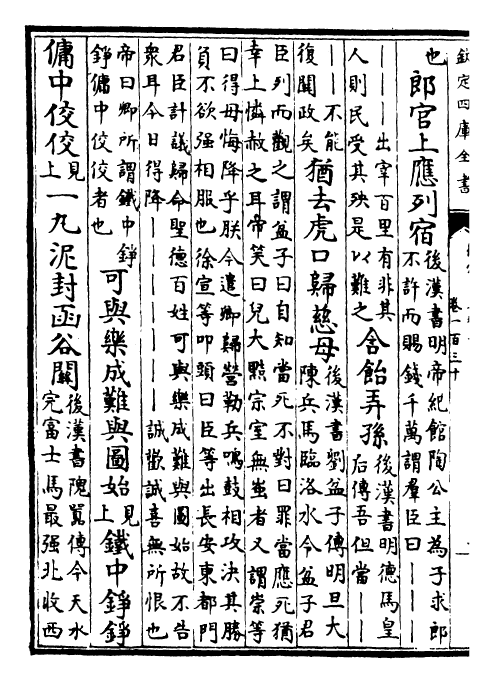 欽定四庫全書
卷一百三十
也
郎官上應列宿
後漢書明帝紀館陶公主為子求郎
不許而賜錢千萬謂羣臣曰————
——出宰百里有非其
人則民受其殃是以難之
舍飴弄孫
後漢書明德馬皇
后傳吾但當——
——不能
復關政矣
猶去虎口歸慈母
後漢書劉盆子傳明旦大
陳兵馬臨洛水今盆子君
臣列而觀之謂盆子曰自知當死不對曰罪當應死猶
幸上憐赦之耳帝笑曰兒大黠宗室無蚩者又謂崇等
曰得毋悔降乎朕今遣卿歸營勒兵鳴鼓相攻決其勝
負不欲强相服也徐宣等叩頭曰臣等出長安東都門
君臣計議歸命聖德百姓可與樂成難與圖始故不告
衆耳今日得降———————誠歡誠喜無所恨也
帝曰卿所謂鐵中錚
錚傭中佼佼者也
可與樂成難與圖始
見上
鐵中錚錚
傭中佼佼
見上
一丸泥封函谷關
後漢書隗囂傳今天水
完富士馬最强北收西